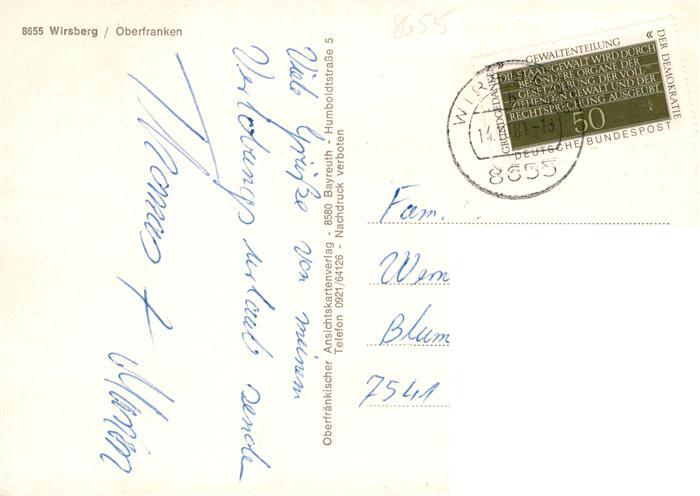 8655 Wirsberg / Oberfranken
8655
GRUNDGEDANKEN
» GEWALTENTEILUNG «
DER DEMOKRATIE
DIE STAATSGEWALT WIRD DURCH
BESONDERE ORGANE DER
GESETZGEBUNG, DER VOLL-
ZIEHENDEN GEWALT UND DER
RECHTSPRECHUNG AUSGEÜBT
50
DEUTSCHE BUNDESPOST
WIR
14. 81-13
8655
Viele Grüße von meinem
Verlobungsurlaub sende
Oberfränkischer Ansichtskartenverlag - 8580 Bayreuth - Humboldtstraße 5
Telefon 0921/64126 - Nachdruck verboten
Fam.
Wern
Blum
7541